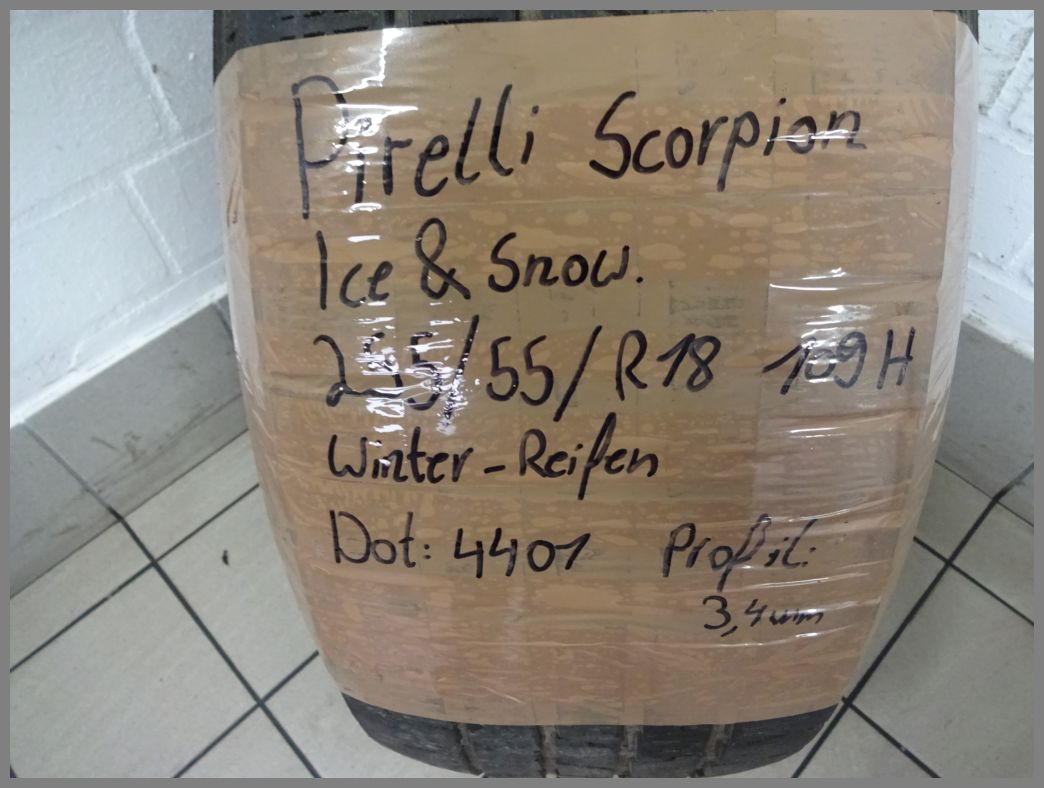 Pirelli Scorpion
Ice & Snow.
255/55/R18 109H
Winter-Reifen
Dot: 4401 Profil:
3,4mm